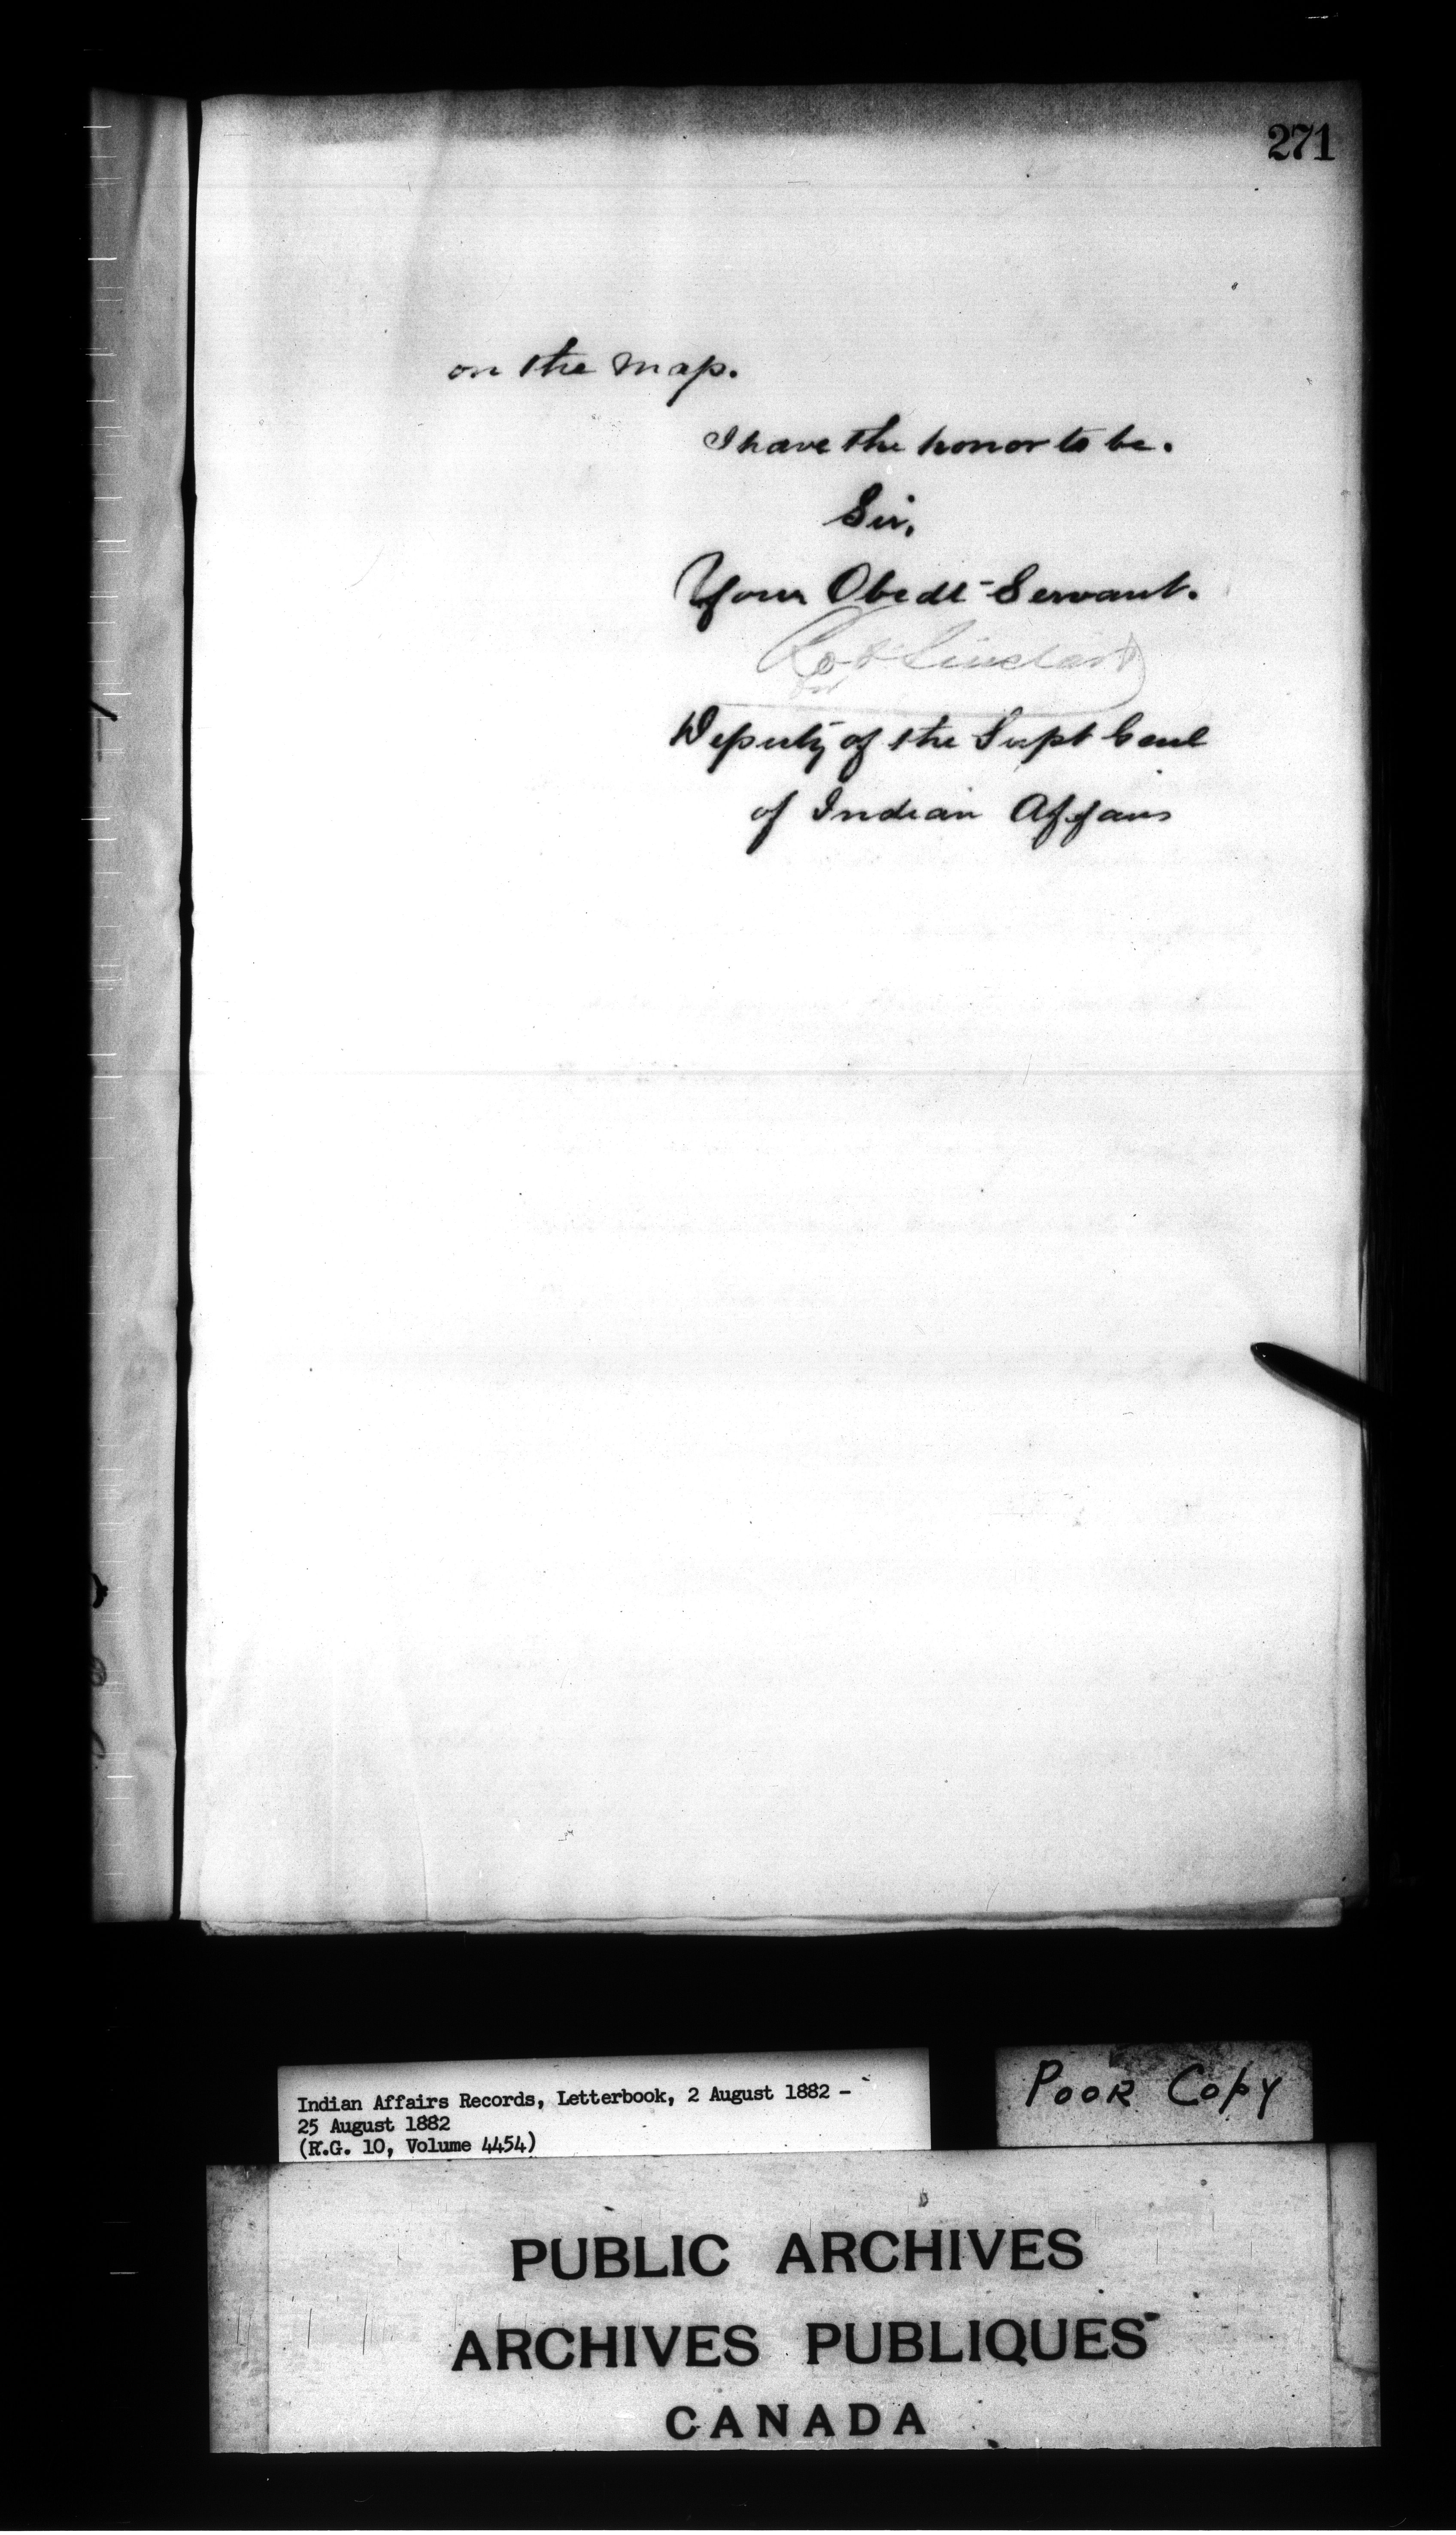 271
on the map.
I have the honor to be.
Sir,
Your Obedt Servant.
Robt Sinclair
for
Deputy of the Supt Genl
of Indian Affairs
Indian Affairs Records, Letterbook, 2 August 1882 -
25 August 1882
(R.G. 10, Volume 4454)
POOR COPY
PUBLIC ARCHIVES
ARCHIVES PUBLIQUES
CANADA